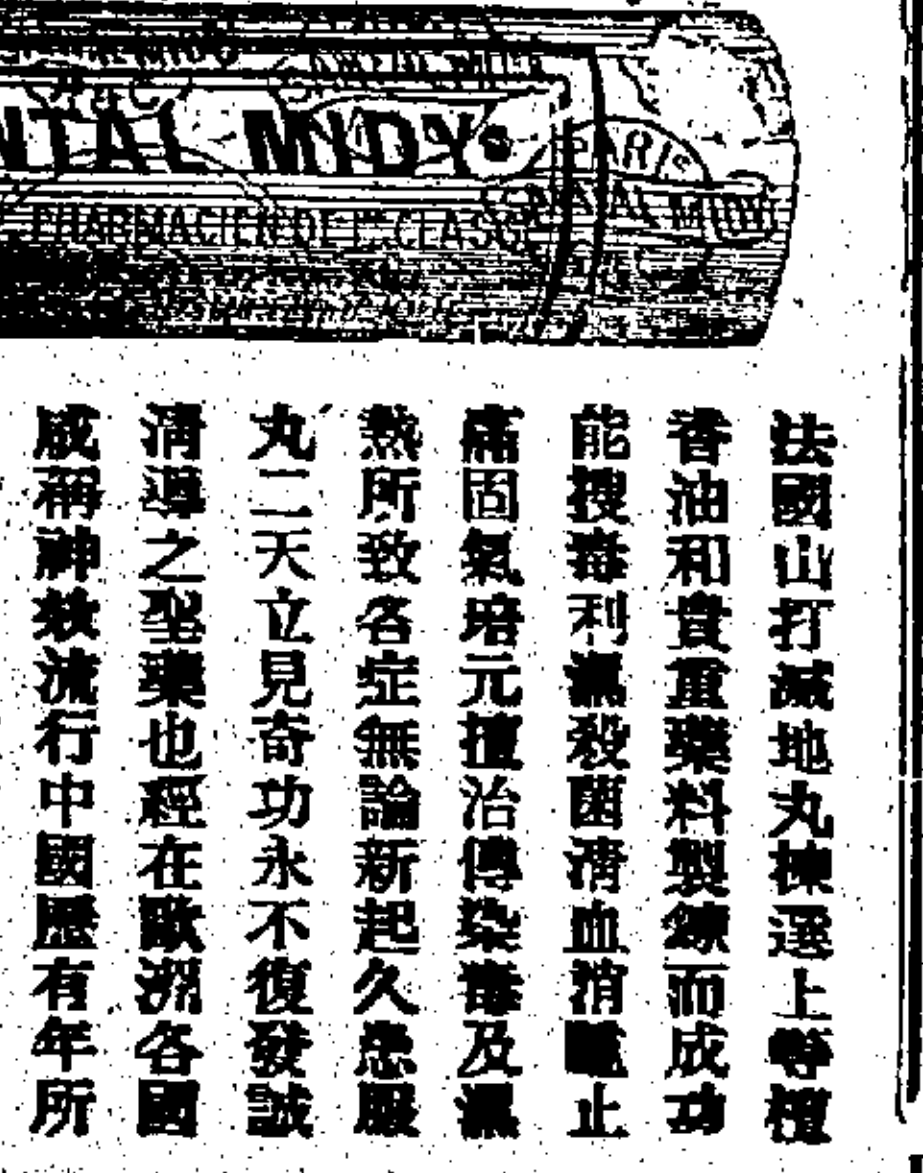 NTAL MIDY
PARIS
SANTAL MIDY
PHARMACIEN DE 1re CLASSE
法國山打滅地丸揀選上等檀
香油和貴重藥料製煉而成功
能搜毒利濕殺菌清血消腫止
痛固氣培元擅治傳染毒及濕
熱所致各症無論新起久患服
丸二天立見奇功永不復發誠
清導之聖藥也經在歐洲各國
咸稱神效流行中國歷有年所